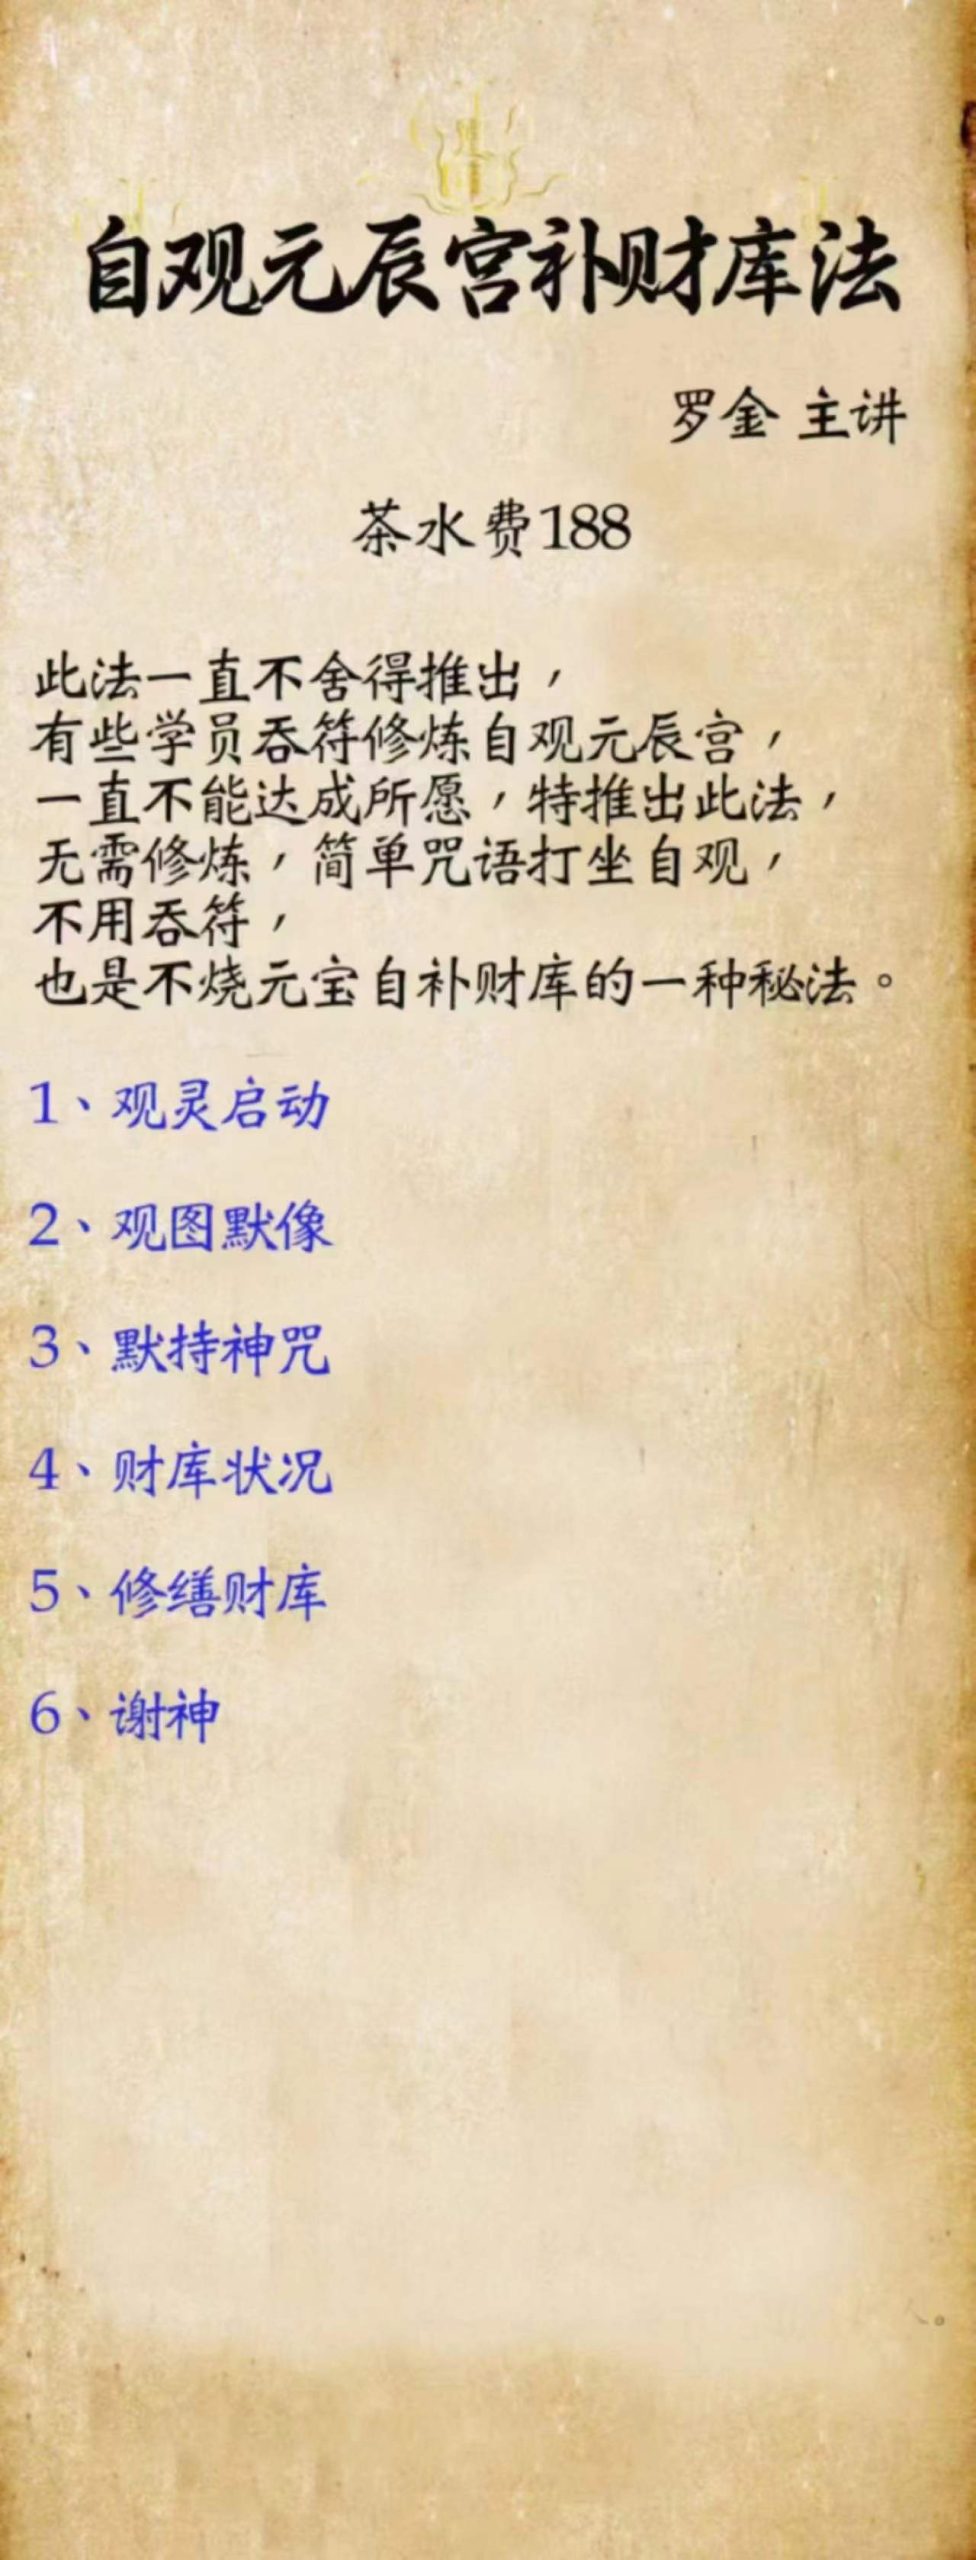 自观元辰宫补财库法
罗金 主讲
茶水费188
此法一直不舍得推出，
有些学员吞符修炼自观元辰宫，
一直不能达成所愿，特推出此法，
无需修炼，简单咒语打坐自观，
不用吞符，
也是不烧元宝自补财库的一种秘法。
1、观灵启动
2、观图默像
3、默持神咒
4、财库状况
5、修缮财库
6、谢神